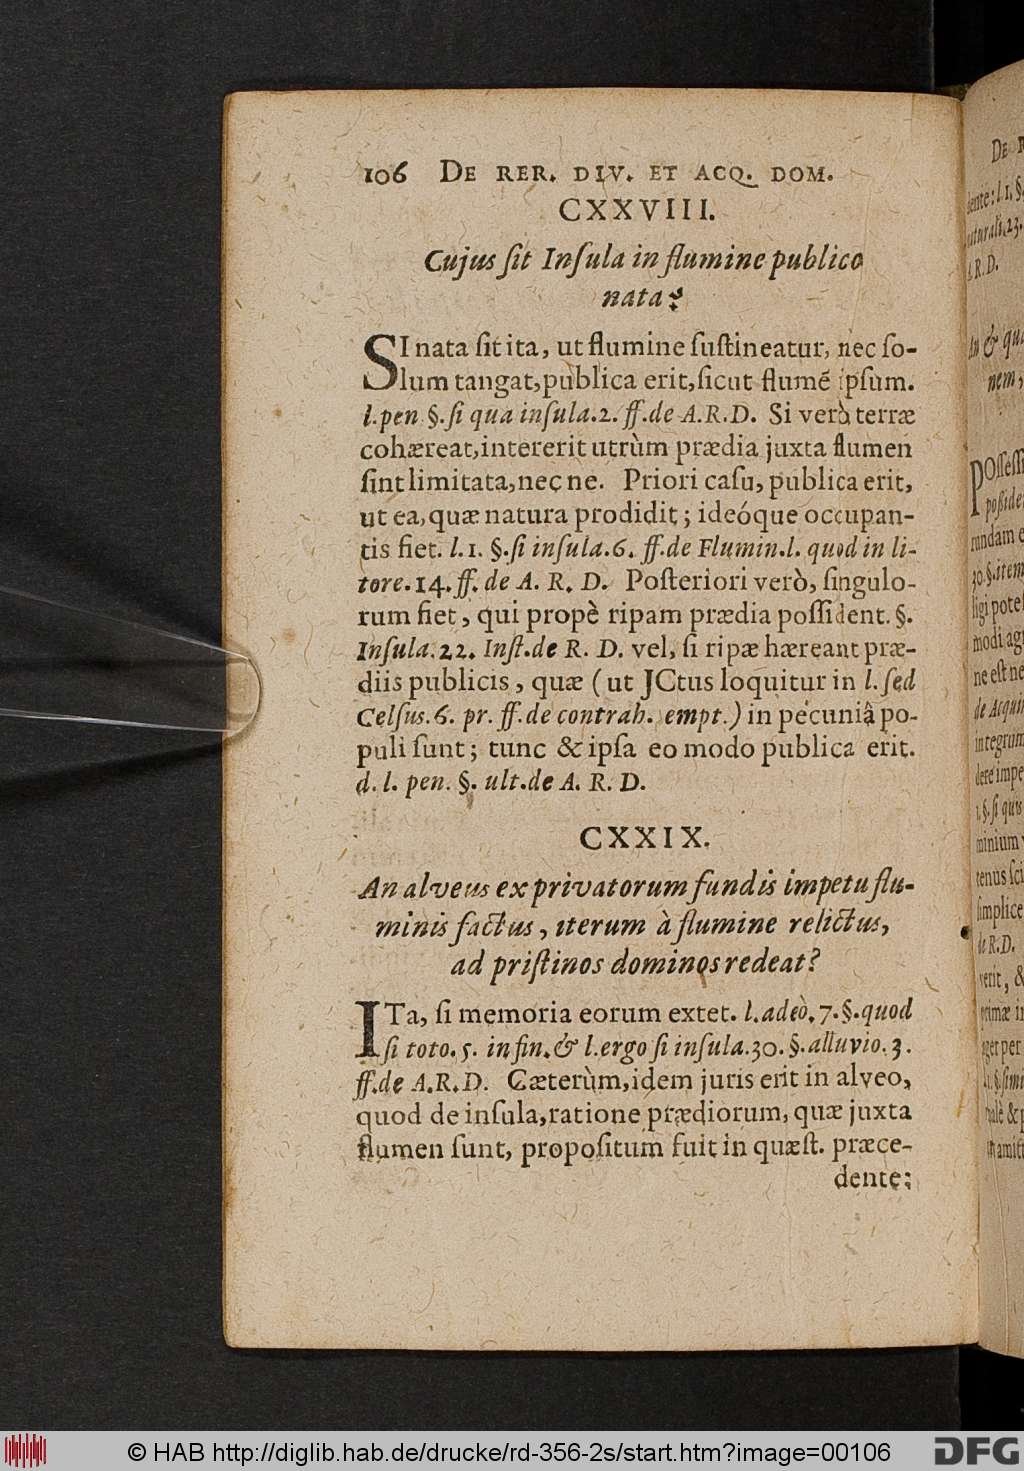 106 DE RER. DIV. ET ACQ. DOM.
CXXVIII.
Cujus ſit Inſula in flumine publico
nata?
SI nata ſit ita, ut flumine ſuſtineatur, nec ſo-
lum tangat, publica erit, ſicut flumē ipſum.
l. pen §. ſi qua inſula. 2. ff. de A. R. D. Si verò terræ
cohæreat, intererit utrùm prædia juxta flumen
ſint limitata, nec ne. Priori caſu, publica erit,
ut ea, quæ natura prodidit; ideóque occupan-
tis fiet. l. 1. §. ſi inſula. 6. ff. de Flumin. l. quod in li-
tore. 14. ff. de A. R. D. Poſteriori verò, ſingulo-
rum fiet, qui propè ripam prædia poſſident. §.
Inſula. 22. Inſt. de R. D. vel, ſi ripæ hæreant præ-
diis publicis, quæ (ut JCtus loquitur in l. ſed
Celſus. 6. pr. ff. de contrah. empt.) in pecuniâ po-
puli ſunt; tunc & ipſa eo modo publica erit.
d. l. pen. §. ult. de A. R. D.
CXXIX.
An alveus ex privatorum fundis impetu flu-
minis factus, iterum à flumine relictus,
ad priſtinos dominos redeat?
ITa, ſi memoria eorum extet. l. adeò. 7. §. quod
ſi toto. 5. in fin. & l. ergo ſi inſula. 30. §. alluvio. 3.
ff. de A. R. D. Cæterùm, idem juris erit in alveo,
quod de inſula, ratione prædiorum, quæ juxta
flumen ſunt, propoſitum fuit in quæſt. præce-
dente:
© HAB http://diglib.hab.de/drucke/rd-356-2s/start.htm?image=00106
DFG